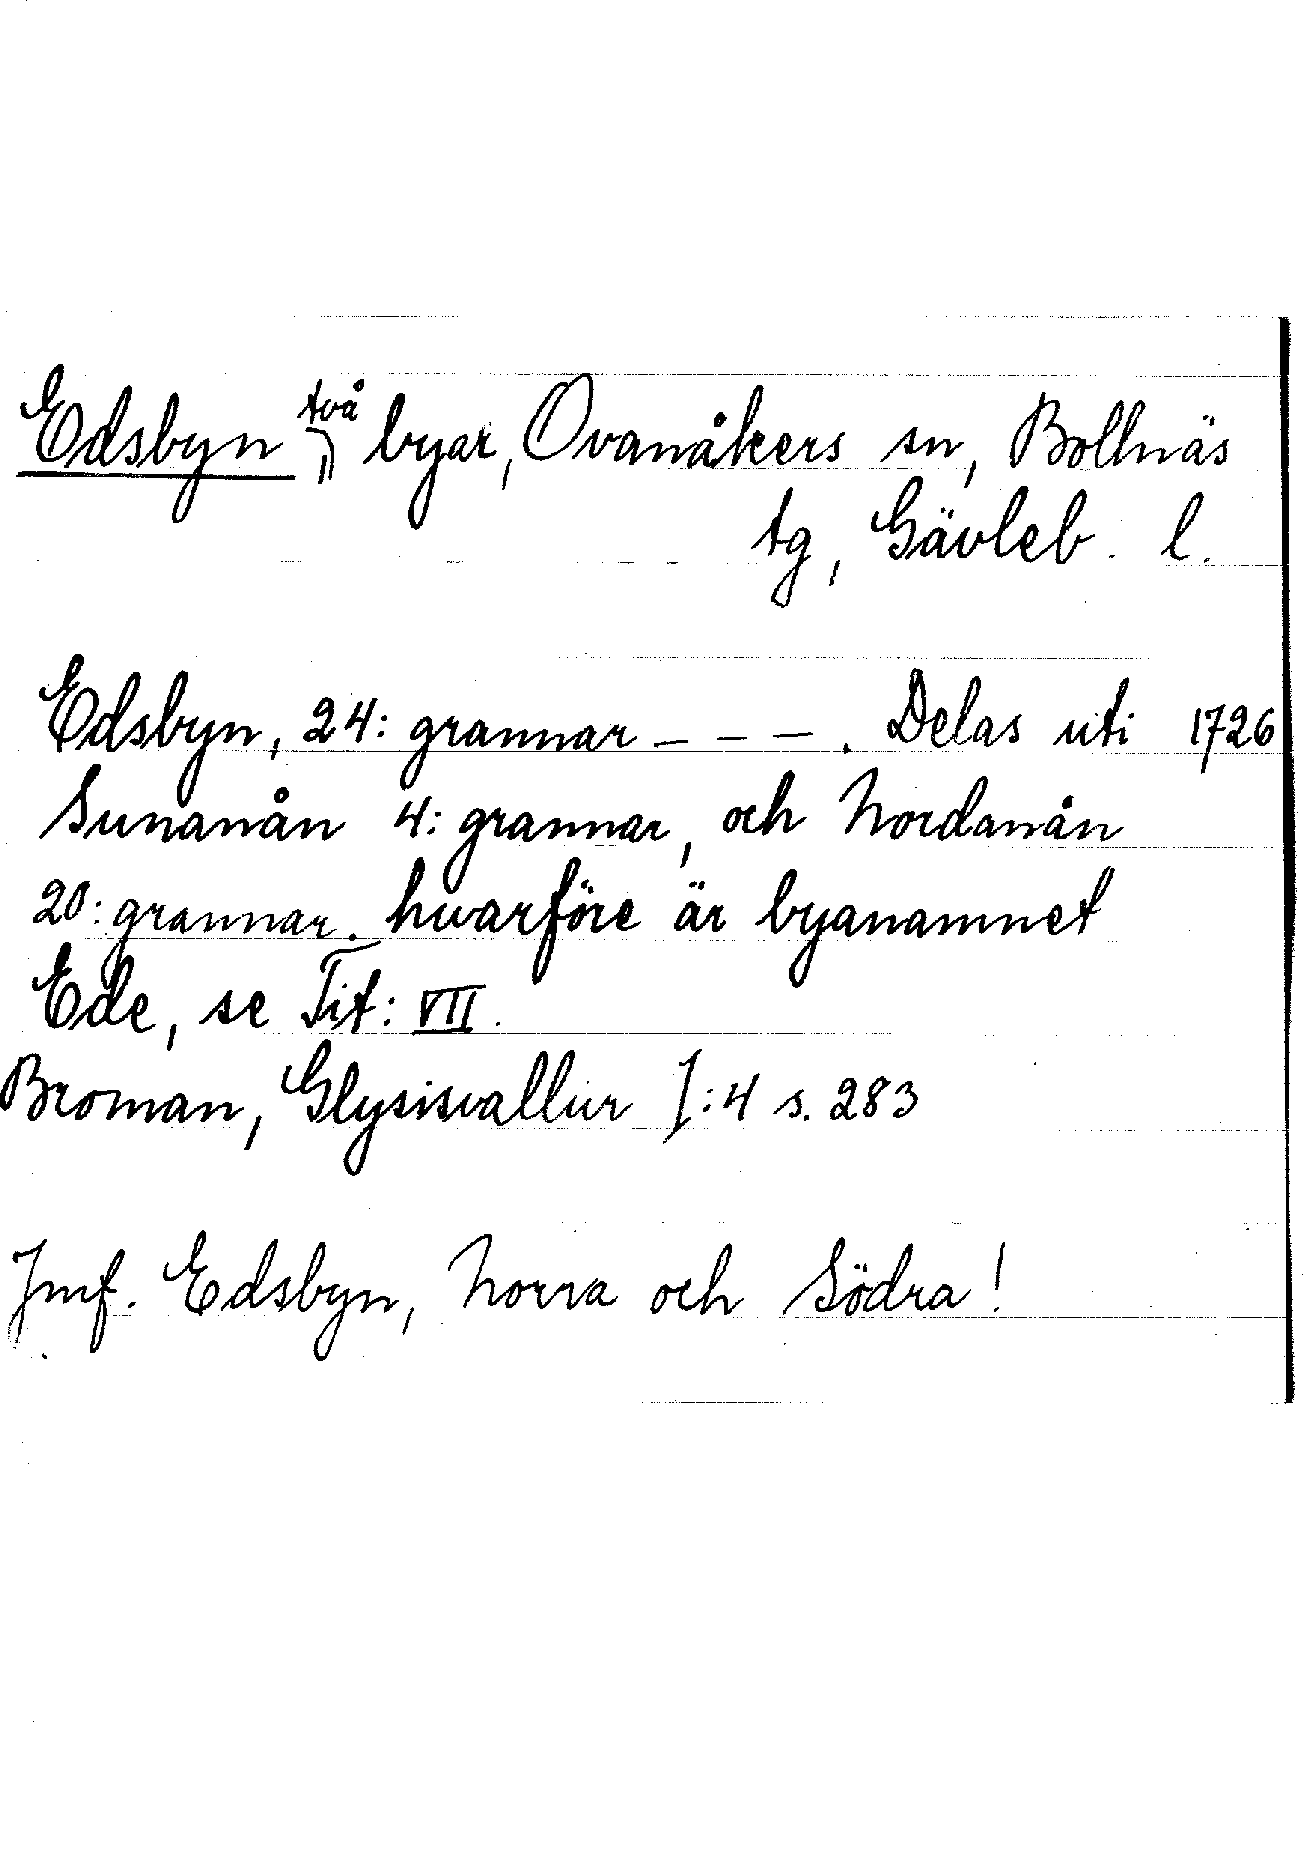 Edsbyn två byar, Ovanåkers sn, Bollnäs
tg, Gävleb. l.
Edsbyn, 24: grannar _ _ _ . Delas uti 1726
Sunanån 4: grannar, och Nordanån
20: grannar. hwarföre är byanamnet
Ede, se Tit: VII.
Broman, Glysisvallur I:4 s. 283
Jmf. Edsbyn, Norra och Södra!